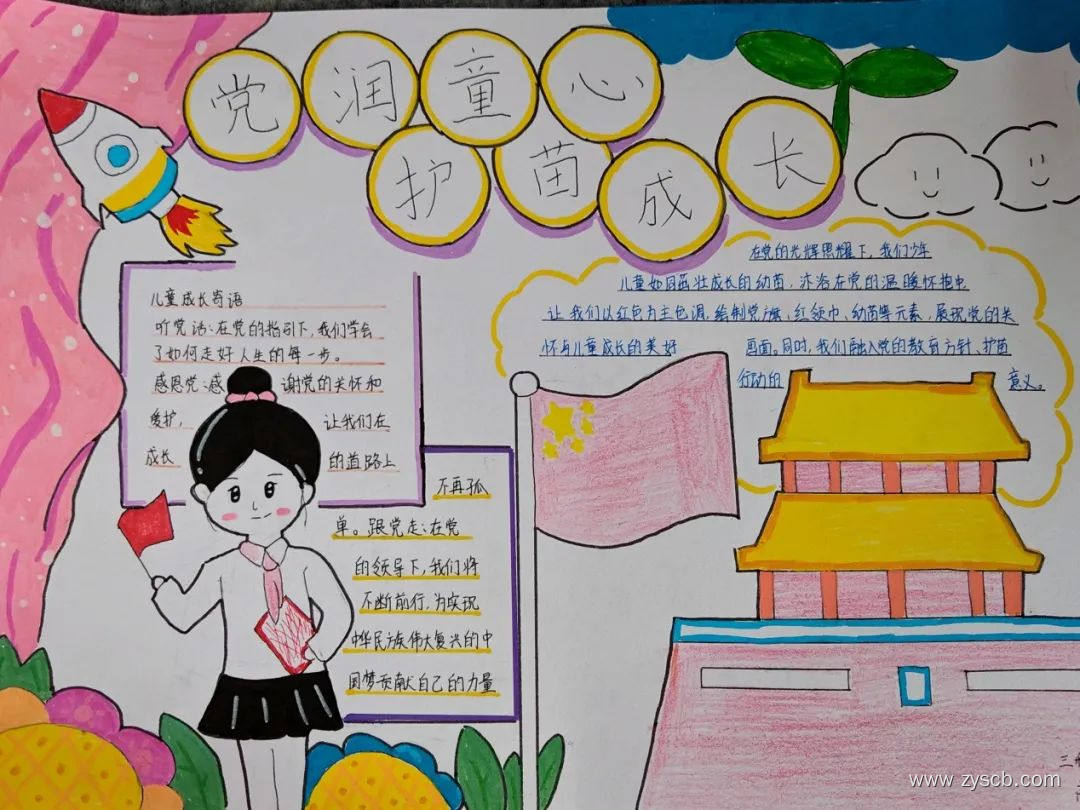 党润童心
护苗成长
儿童成长寄语
听党话:在党的指引下,我们学会
了如何走好人生的每一步。
感恩党:感谢党的关怀和
爱护,让我们在
成长的道路上
不再孤
单。跟党走:在党
的领导下,我们将
不断前行,为实现
中华民族伟大复兴的中
国梦贡献自己的力量
在党的光辉照耀下,我们少年
儿童如同茁壮成长的幼苗,沐浴在党的温暖怀抱中
让我们以红色为主色调,绘制党旗、红领巾、幼苗等元素,展现党的关
怀与儿童成长的美好画面。同时,我们融入党的教育方针、护苗
行动的意义。
三
www.zyscb.com